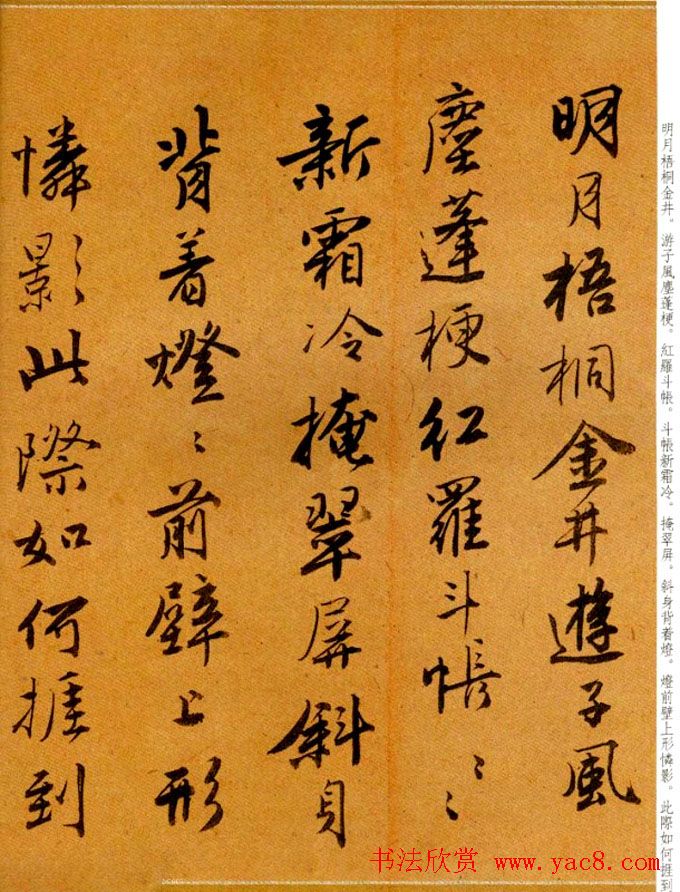 明月梧桐金井遊子風
塵蓬梗紅羅斗帳〻〻
新霜冷掩翠屏斜身
背着燈〻前壁上形
憐影此際如何捱到
明月梧桐金井。游子風塵蓬梗。紅羅斗帳。斗帳新霜冷。掩翠屏。斜身背着燈。燈前壁上形憐影。此際如何捱到
书法欣赏 www.yac8.com